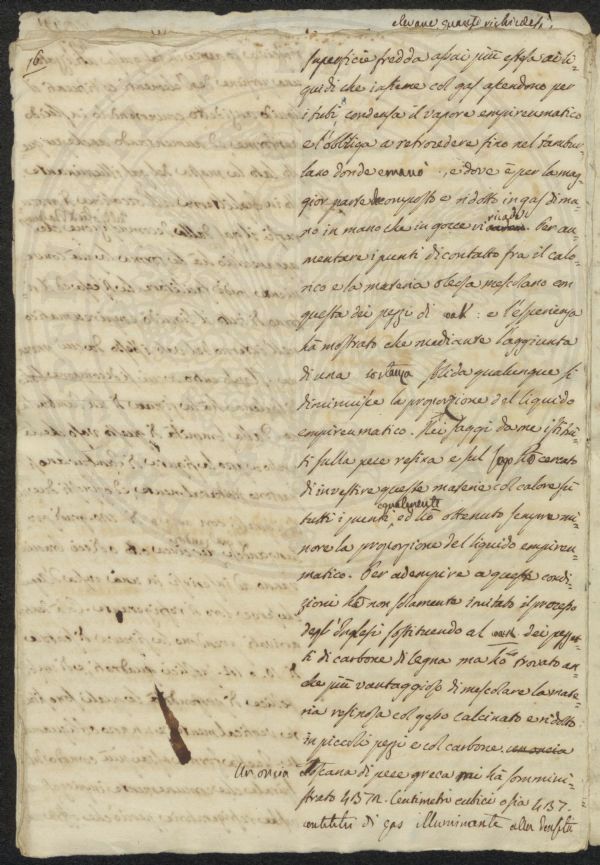 elevare quanto richiedesi
16
superficie fredda assai più estesa ai li-
quidi che insieme col gas ascendono per
i tubi, condensa il vapore empireumatico
e l'obbliga a retrocedere fino nel tambur-
lano donde emanò, e dove è per la mag-
gior parte decomposto e ridotto in gas di ma-
no in mano che in gocce vi ricade. Per au-
mentare i punti di contatto fra il calo-
rico e la materia oleosa mescolano con
questa dei pezzi di coak: e l'esperienza
hà mostrato che mediante l'aggiunta
di una sostanza solida qualunque si
diminuisce la proporzione del liquido
empireumatico. Nei saggi da me istitui-
ti sulla pece resina e sul sego hò cercato
di investire queste materie col calore su
tutti i punti egualmente, ed hò ottenuto sempre mi-
nore la proporzione del liquido empireu-
matico. Per adempire a queste condi-
zioni hò non solamente imitato il processo
degl'Inglesi sostituendo al coak dei pezzet-
ti di carbone di legna ma hò trovato an-
che più vantaggioso di mescolare la mate-
ria resinosa col gesso calcinato e ridotto
in piccoli pezzi e col carbone.
Un oncia toscana di pece greca mi hà sommini-
strato Centimetri cubici o sia 4137.
centilitri di gas illuminante alla densità